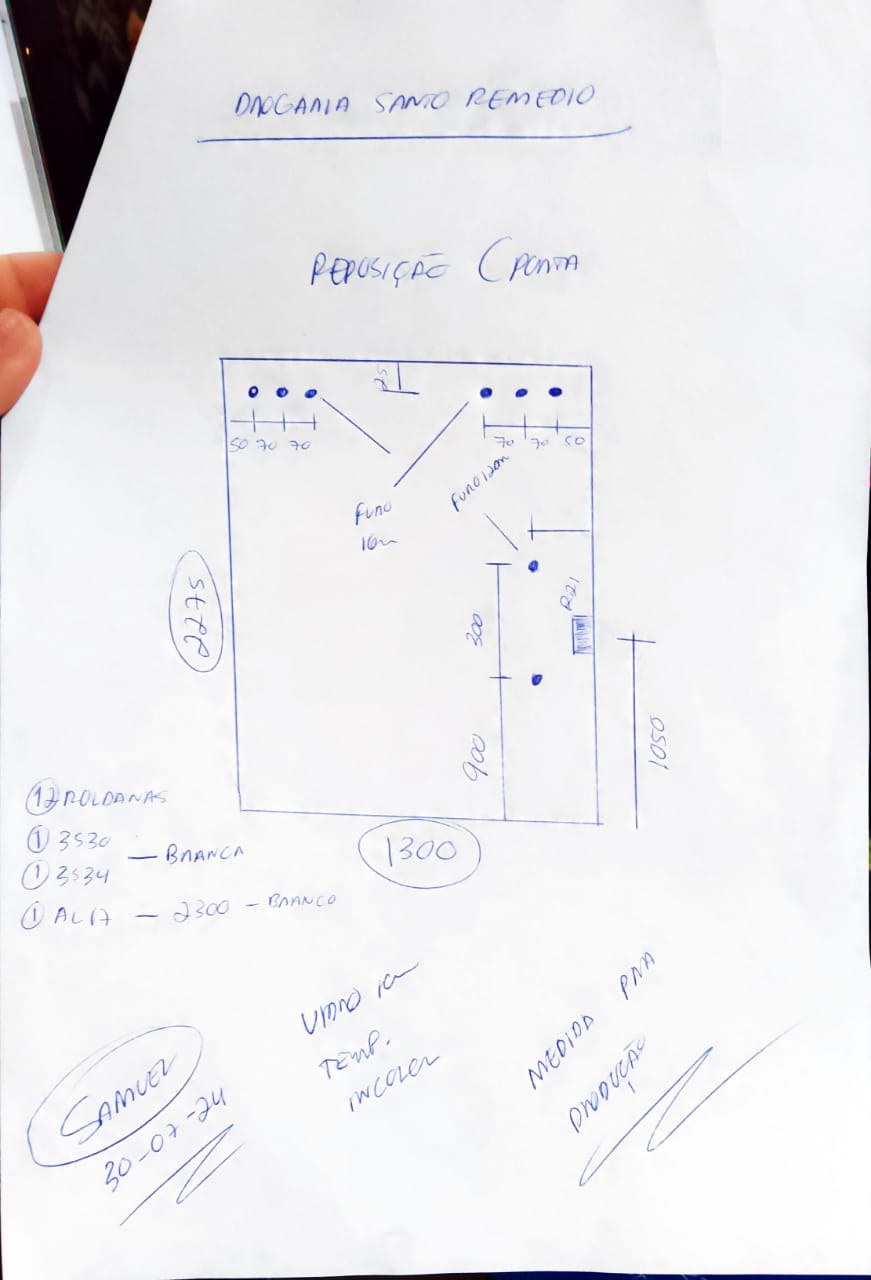 DROGARIA SANTO REMEDIO
REPOSIÇÃO (PORTA
25
50 70 70
70 70 50
FURO
FURO 12m
R21
2275
300
900
1050
1300
12 ROLDANAS
1 3530
1 3534
— BRANCA
1 AL17 — 2300 - BRANCO
VIDRO
TEMP.
INCOLOR
MEDIDA PRA
PRODUÇÃO
SAMUEL
30-07-24